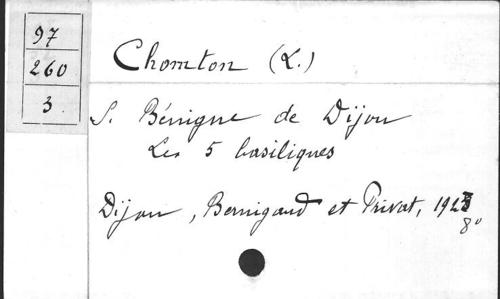 97
260
3
Chomton (L.)
S. Bénigne de Dijon
Les 5 basiliques
Dijon, Bernigaud et Privat, 1923
8°